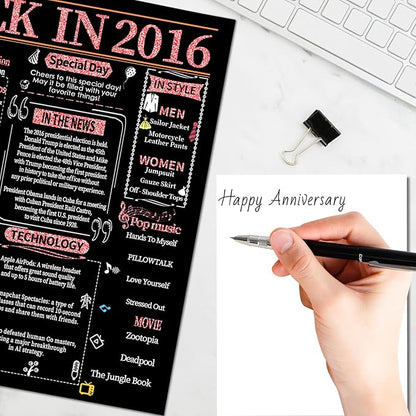 CK IN 2016
Special Day
Cheers to this special day!
May it be filled with your
favorite things!
IN THE NEWS
The 2016 presidential election is held.
Donald Trump is elected as the 45th
President of the United States and Mike
Pence is elected the 48th Vice President,
with Trump becoming the first president
in history to take the office without
any prior political or military experience.
President Obama lands in Cuba for a meeting
with Cuban President Raúl Castro,
becoming the first U.S. president
to visit Cuba since 1928.
TECHNOLOGY
Apple AirPods: A wireless headset
that offers great sound quality
and up to 5 hours of battery life.
Snapchat Spectacles: a type of
glasses that can record 10-second
and share them with friends.
to defeated human Go masters,
ting a major breakthrough
in AI strategy.
IN STYLE
MEN
Sailor Jacket
Motorcycle
Leather Pants
WOMEN
Jumpsuit
Gauze Skirt
Off-Shoulder Tops
Pop music
Hands To Myself
PILLOWTALK
Love Yourself
Stressed Out
MOVIE
Zootopia
Deadpool
The Jungle Book
Happy Anniversary